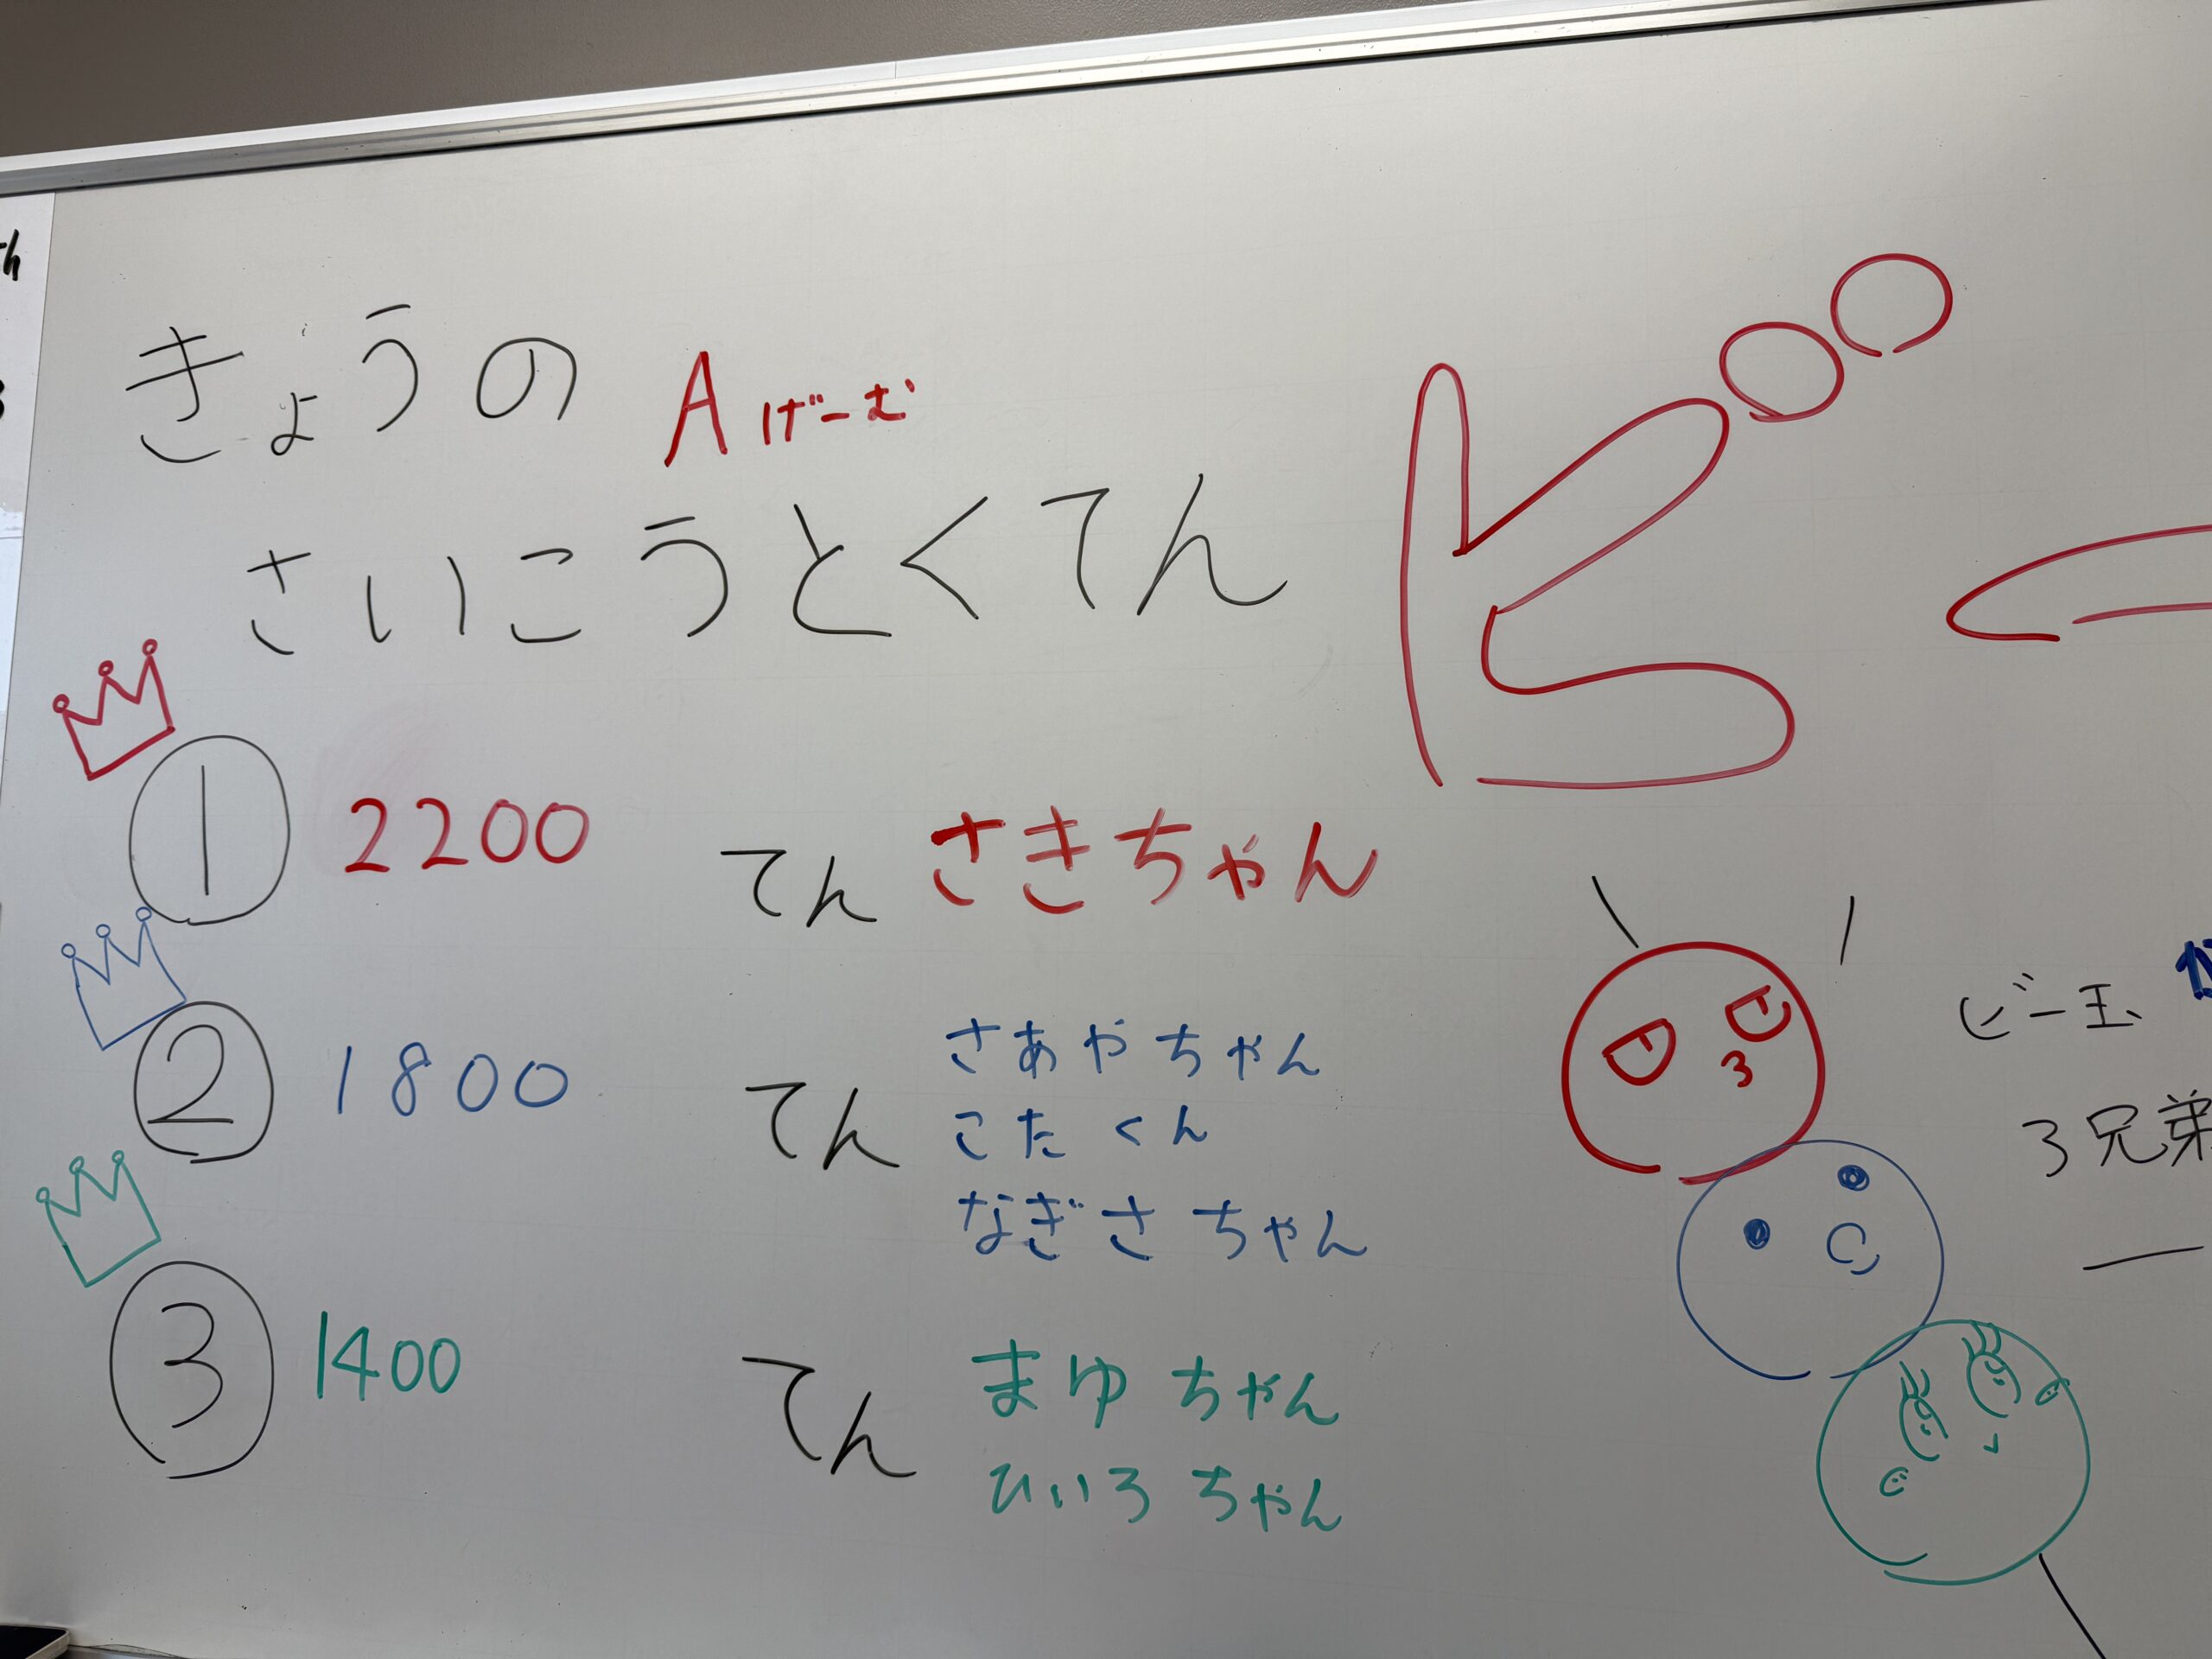 きょうの Aげーむ
さいこうとくてん
① 2200 てん さきちゃん
② 1800 てん さあやちゃん
こたくん
なぎさちゃん
③ 1400 てん まゆちゃん
ひいろちゃん
ビー玉
3兄弟